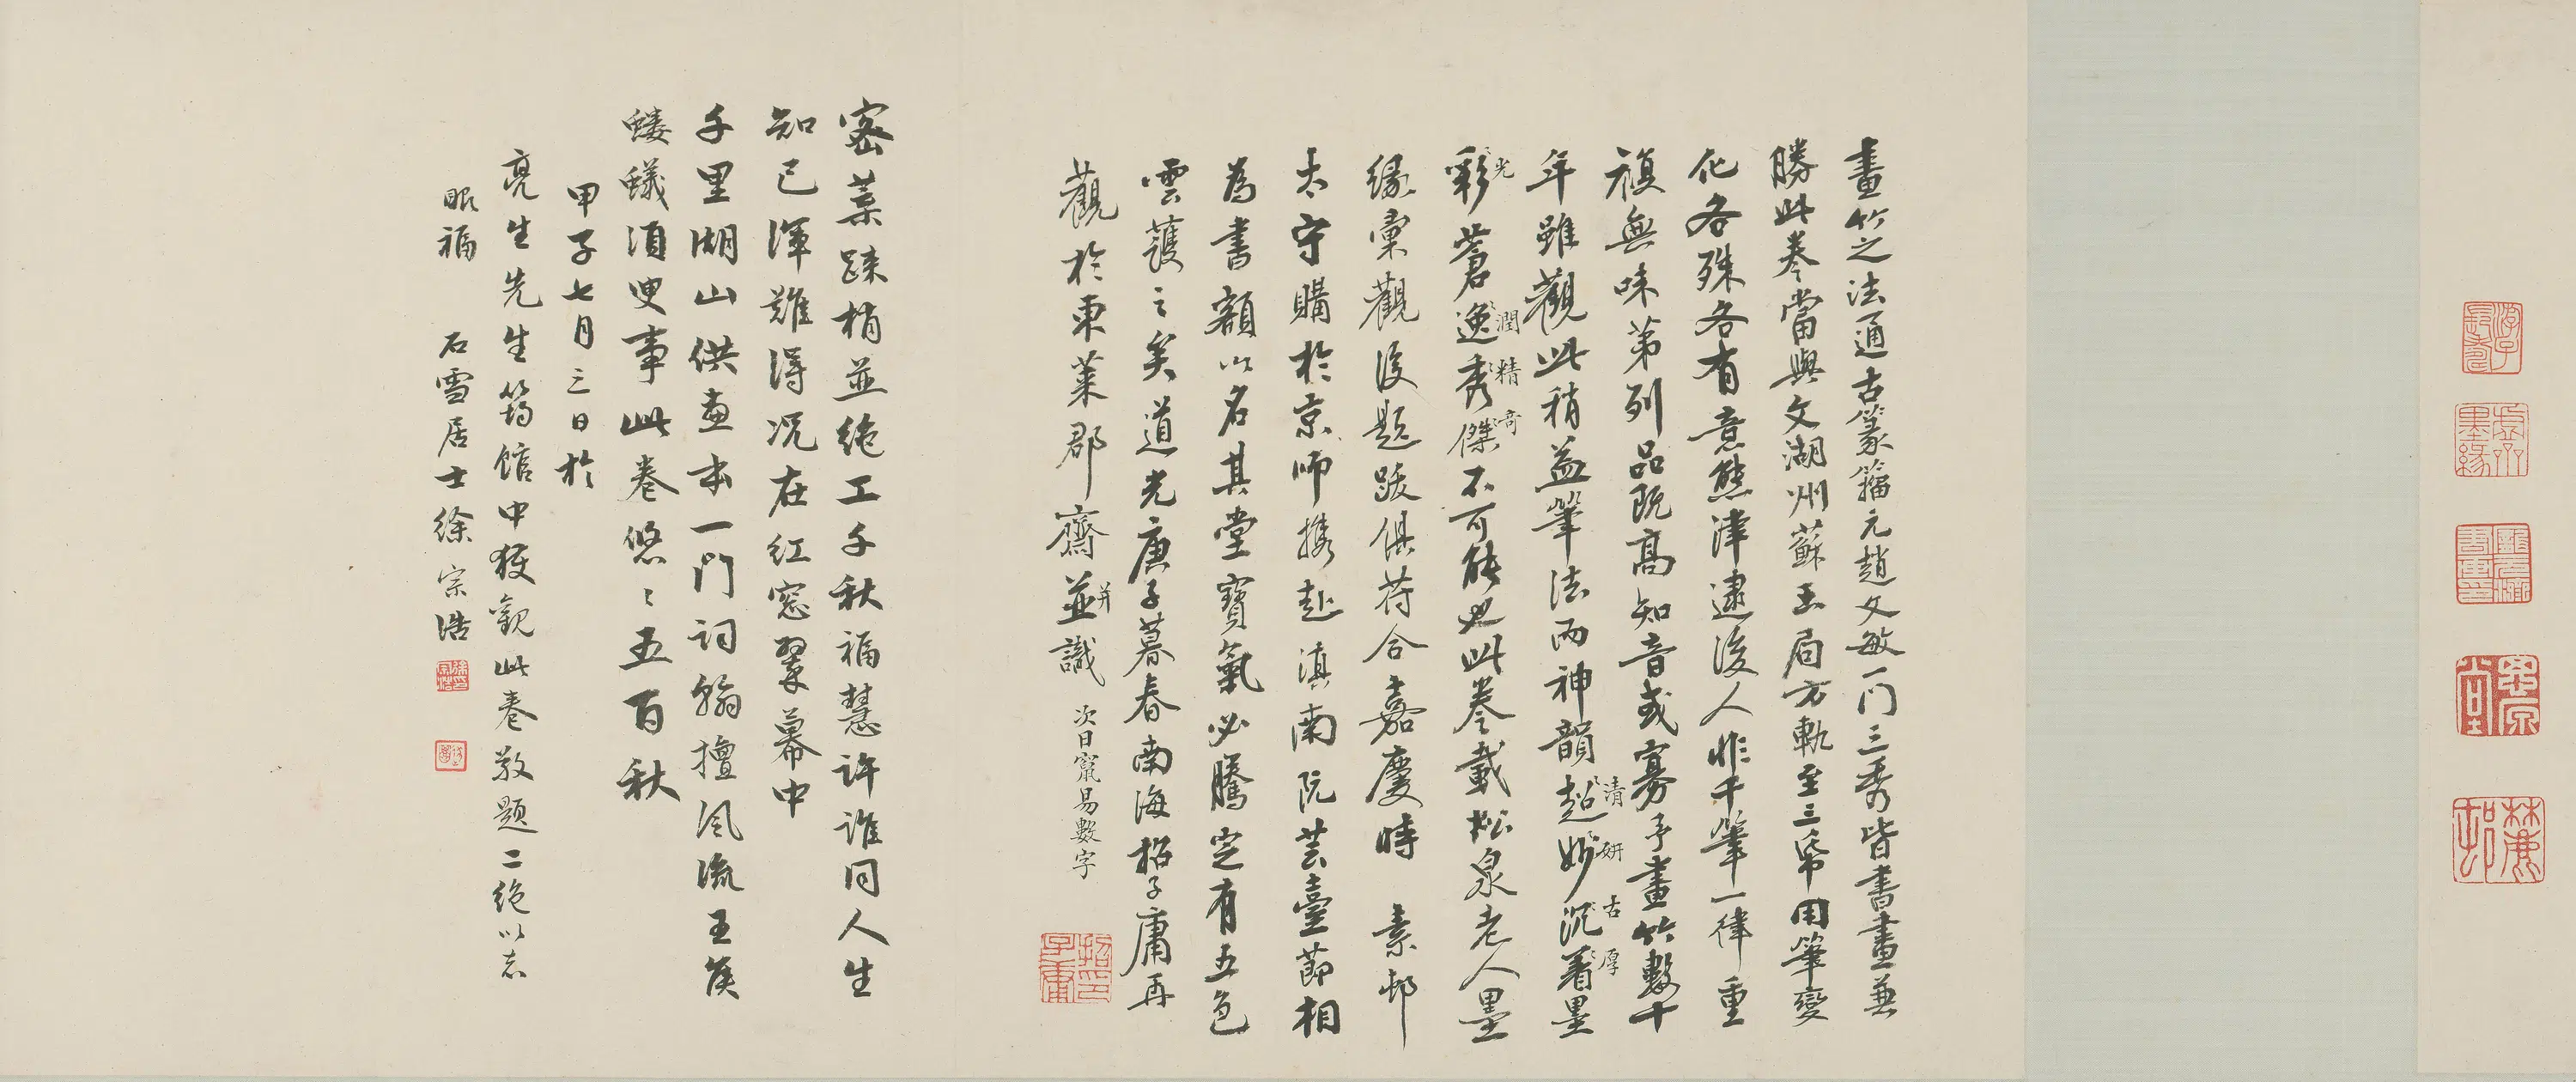 畫竹之法通古篆籀元趙文敏一門三秀皆書畫兼
勝此卷當與文湖州蘇玉局方軌至三帋用筆變
化各殊各有意態津逮後人非千筆一律重
複無味第列品既高知音或寡予畫竹數十
年雖觀此稍益筆法而神韻超妙沉著墨
清妍古厚
彩蒼逸秀傑不可能也此卷載松泉老人墨
光潤精奇
緣彙觀後題跋俱符合嘉慶時 素邨
太守購於京師携赴滇南阮芸臺節相
為書額以名其堂寶氣必騰空有五色
雲護之矣道光庚子暮春南海招子庸再
觀於東萊郡齋並識 次日竄易數字
并
密葉疎梢並絕工千秋福慧許誰同人生
知己渾難得況在紅窓翠幕中
千里湖山供畫本一門詞翰擅風流王侯
螻蟻須臾事此卷悠悠五百秋
甲子七月三日於
亮生先生筠館中獲觀此卷敬題二絕以志
眼福 石雪居士徐宗浩
招印子庸